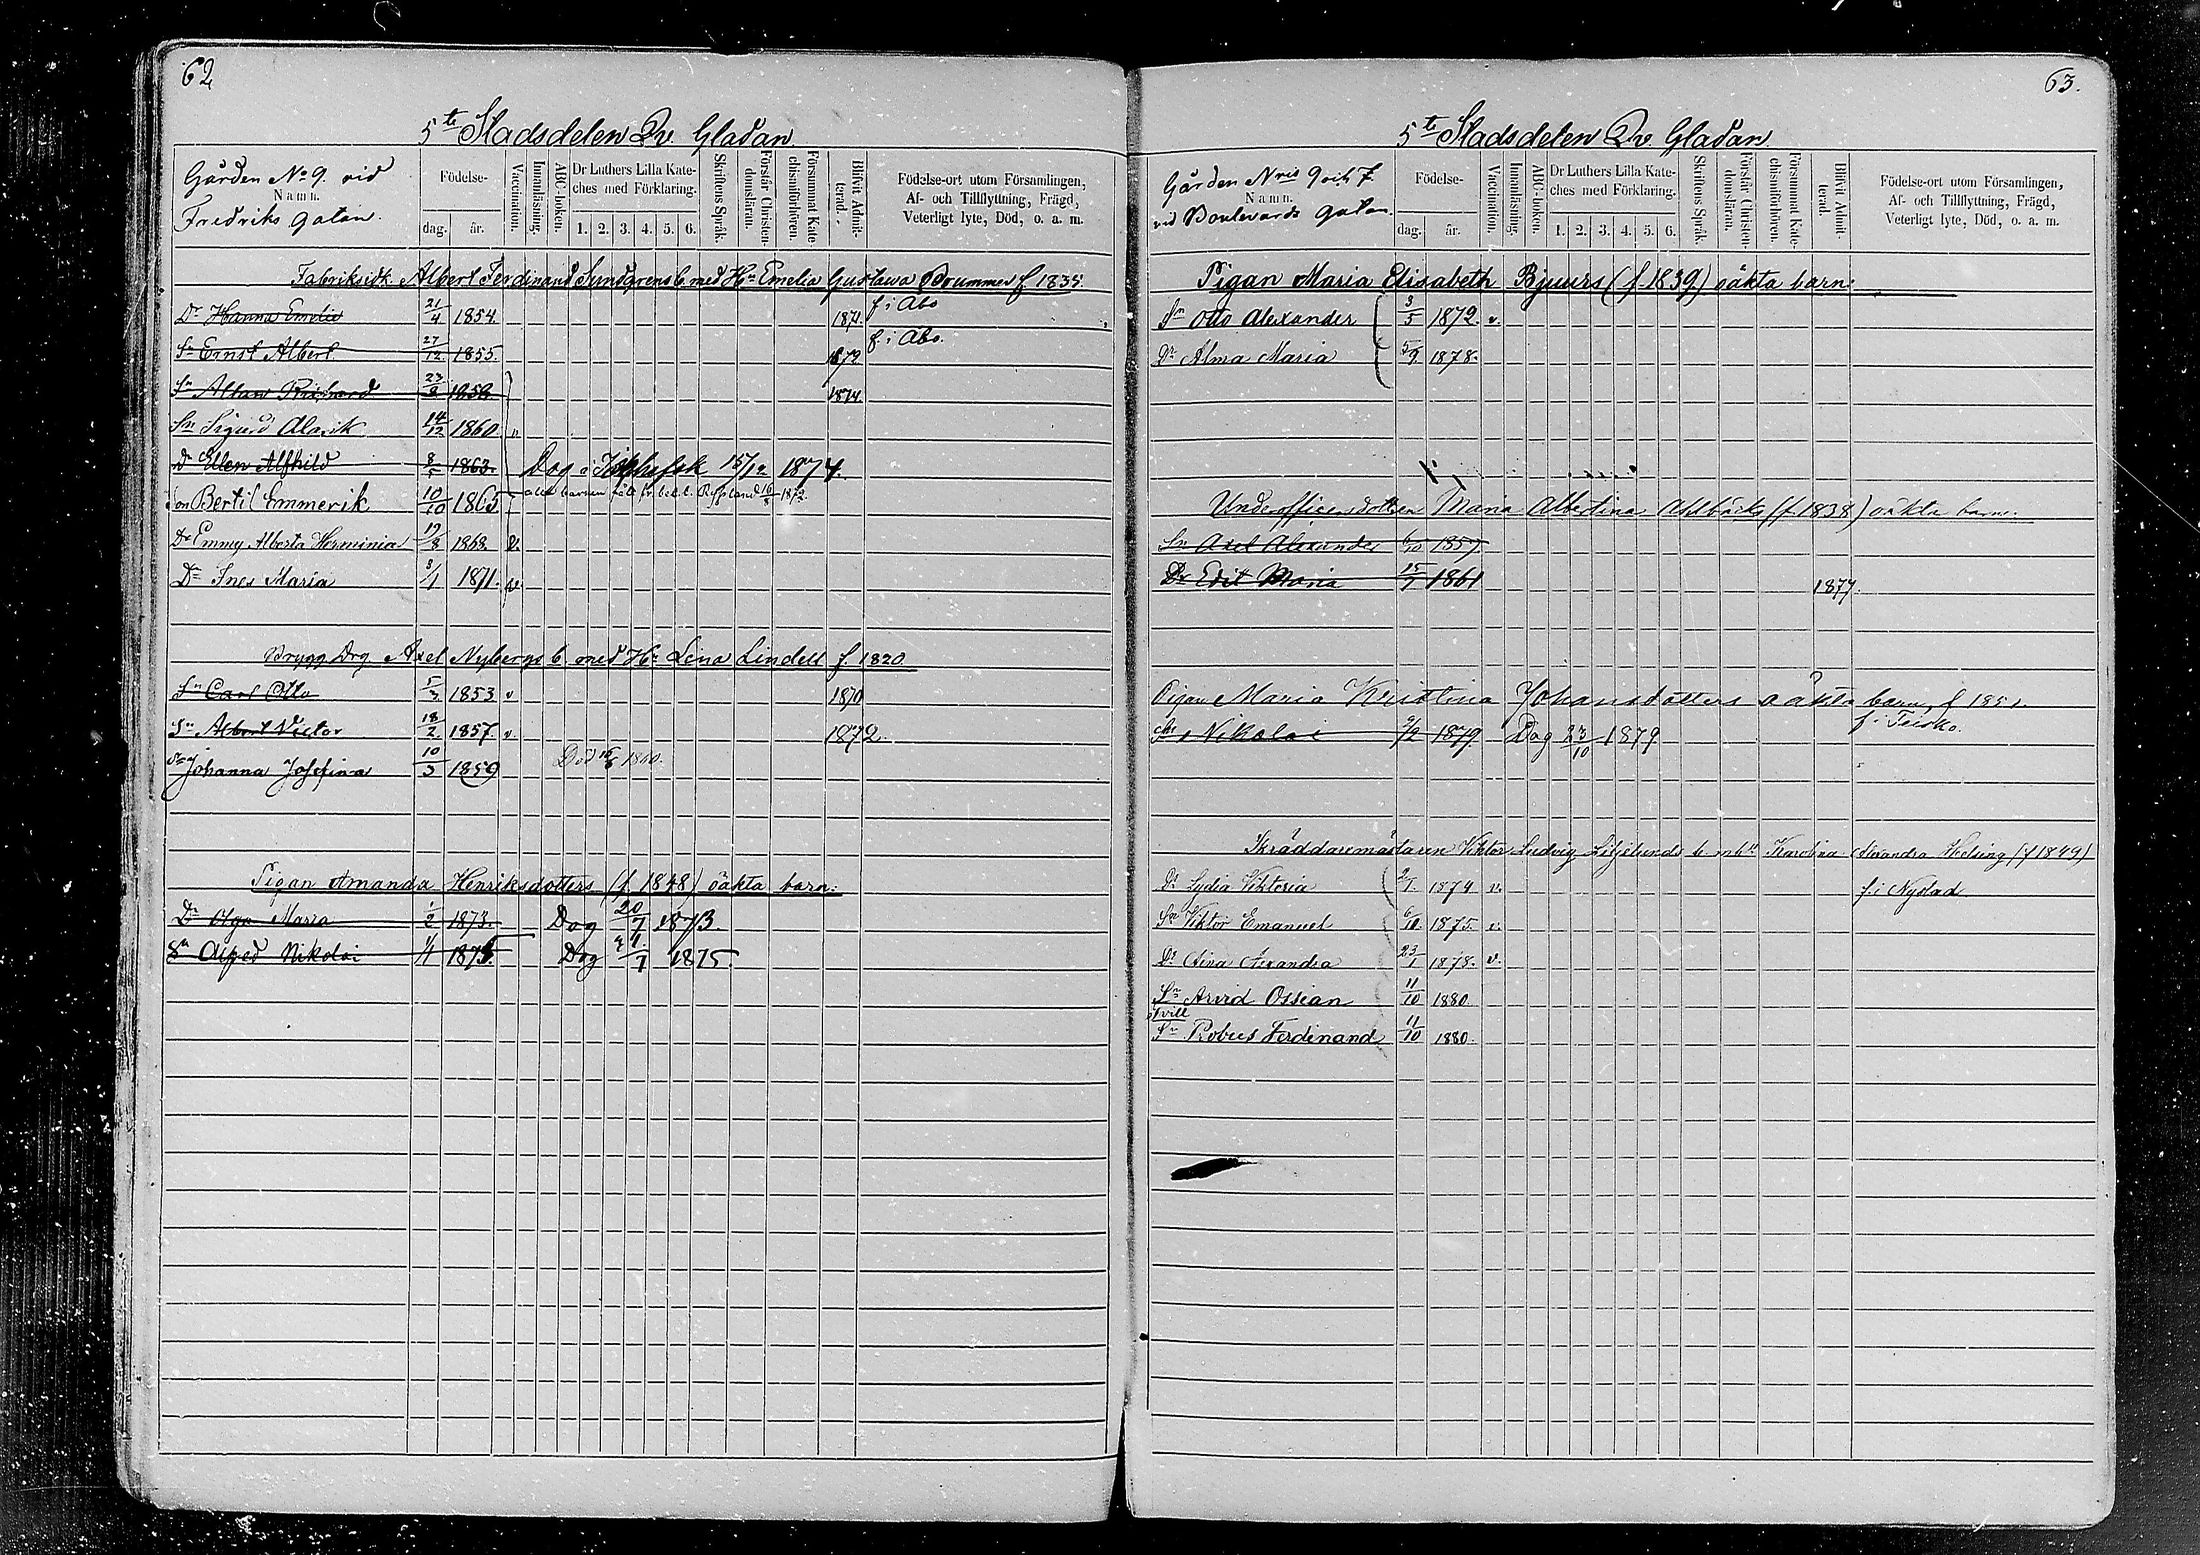 62
5te Stadsdelen Qv. Gladan
Gården No 9. vid
Namn.
Fredriks gatan.
Födelse-
dag. år.
Vaccination.
Innanläsning.
ABC-boken.
Dr Luthers Lilla Kate-
ches med Förklaring.
1. 2. 3. 4. 5. 6.
Skriftens Språk.
Förstår Christen-
domsläran.
Försummat Kate-
chismiförhören.
Blifvit Admit-
terad.
Födelse-ort utom Församlingen,
Af- och Tillflyttning, Frägd,
Veterligt lyte, Död, o. a. m.
Fabriksidk. Albert Ferdinand Sundgrens b. med Hu Emelia Gustawa Brummer f. 1835.
Dr Hanna Emelie 21/4 1854. 1871. f. i Åbo
Sn Ernst Albert. 27/12 1855. 1872 f. i Åbo.
Sn Allan Richard 23/9 1858 1874.
Sn Sigurd Alarik 14/12 1860. v
Dr Ellen Alfhild 8/5 1863. Dog i 15/12 1874.
Son Bertil Emmerik 10/10 1865 alla barnen 16/8 1872.
Dr Emmy Alberta Herminia 19/8 1868. v.
Dr Ines Maria 3/1 1871. v.
Brygg Drg. Axel Nybergs b. med Hu Lena Lindell f. 1820
Sn Carl Otto 5/3 1853 v 1870
Sn Albert Victor 18/2 1857. v 1872.
Johanna Josefina 10/3 1859 Död 1860.
Pigan Amanda Henriksdotters (f. 1848) oäkta barn:
Dr Olga Maria 1/2 1873. Dog 20/7 1873.
Sn Alfred Nikolai 1/1 1875. Dog 21/7 1875.
63.
5te Stadsdelen Qv. Gladan.
Gården Nris 9 och 7
Namn.
vid Boulevards gatan.
Födelse-
dag. år.
Vaccination.
Innanläsning.
ABC-boken.
Dr Luthers Lilla Kate-
ches med Förklaring.
1. 2. 3. 4. 5. 6.
Skriftens Språk.
Förstår Christen-
domsläran.
Försummat Kate-
chismiförhören.
Blifvit Admit-
terad.
Födelse-ort utom Församlingen,
Af- och Tillflyttning, Frägd,
Veterligt lyte, Död, o. a. m.
Pigan Maria Elisabeth Bjuurs (f. 1839) oäkta barn:
Sn Otto Alexander 3/5 1872. v.
Dr Alma Maria 5/9 1878.
Underofficersdottren Maria Albertina Ahlbäcks (f. 1838) oäkta barn:
Sn Axel Alexander 6/10 1857
Dr Edit Maria 15/7 1861 1877.
Pigan Maria Kristina Johansdotters oäkta barn, f 185
f. i Teisko.
Nikolai 9/2 1879. Dog 23/10 1879
Skräddaremästaren Viktor Ludvig Liljelunds b. m hu Karolina Alexandra Welling (f 1849)
f. i Nystad
Dr Lydia Viktoria 2/1. 1874 v.
Sn Viktor Emanuel 6/10. 1875. v.
Dr Aina Alexandra 23/1 1878. v.
Sn Arvid Ossian 11/10 1880.
Tvill
Sn Robert Ferdinand 11/10 1880.